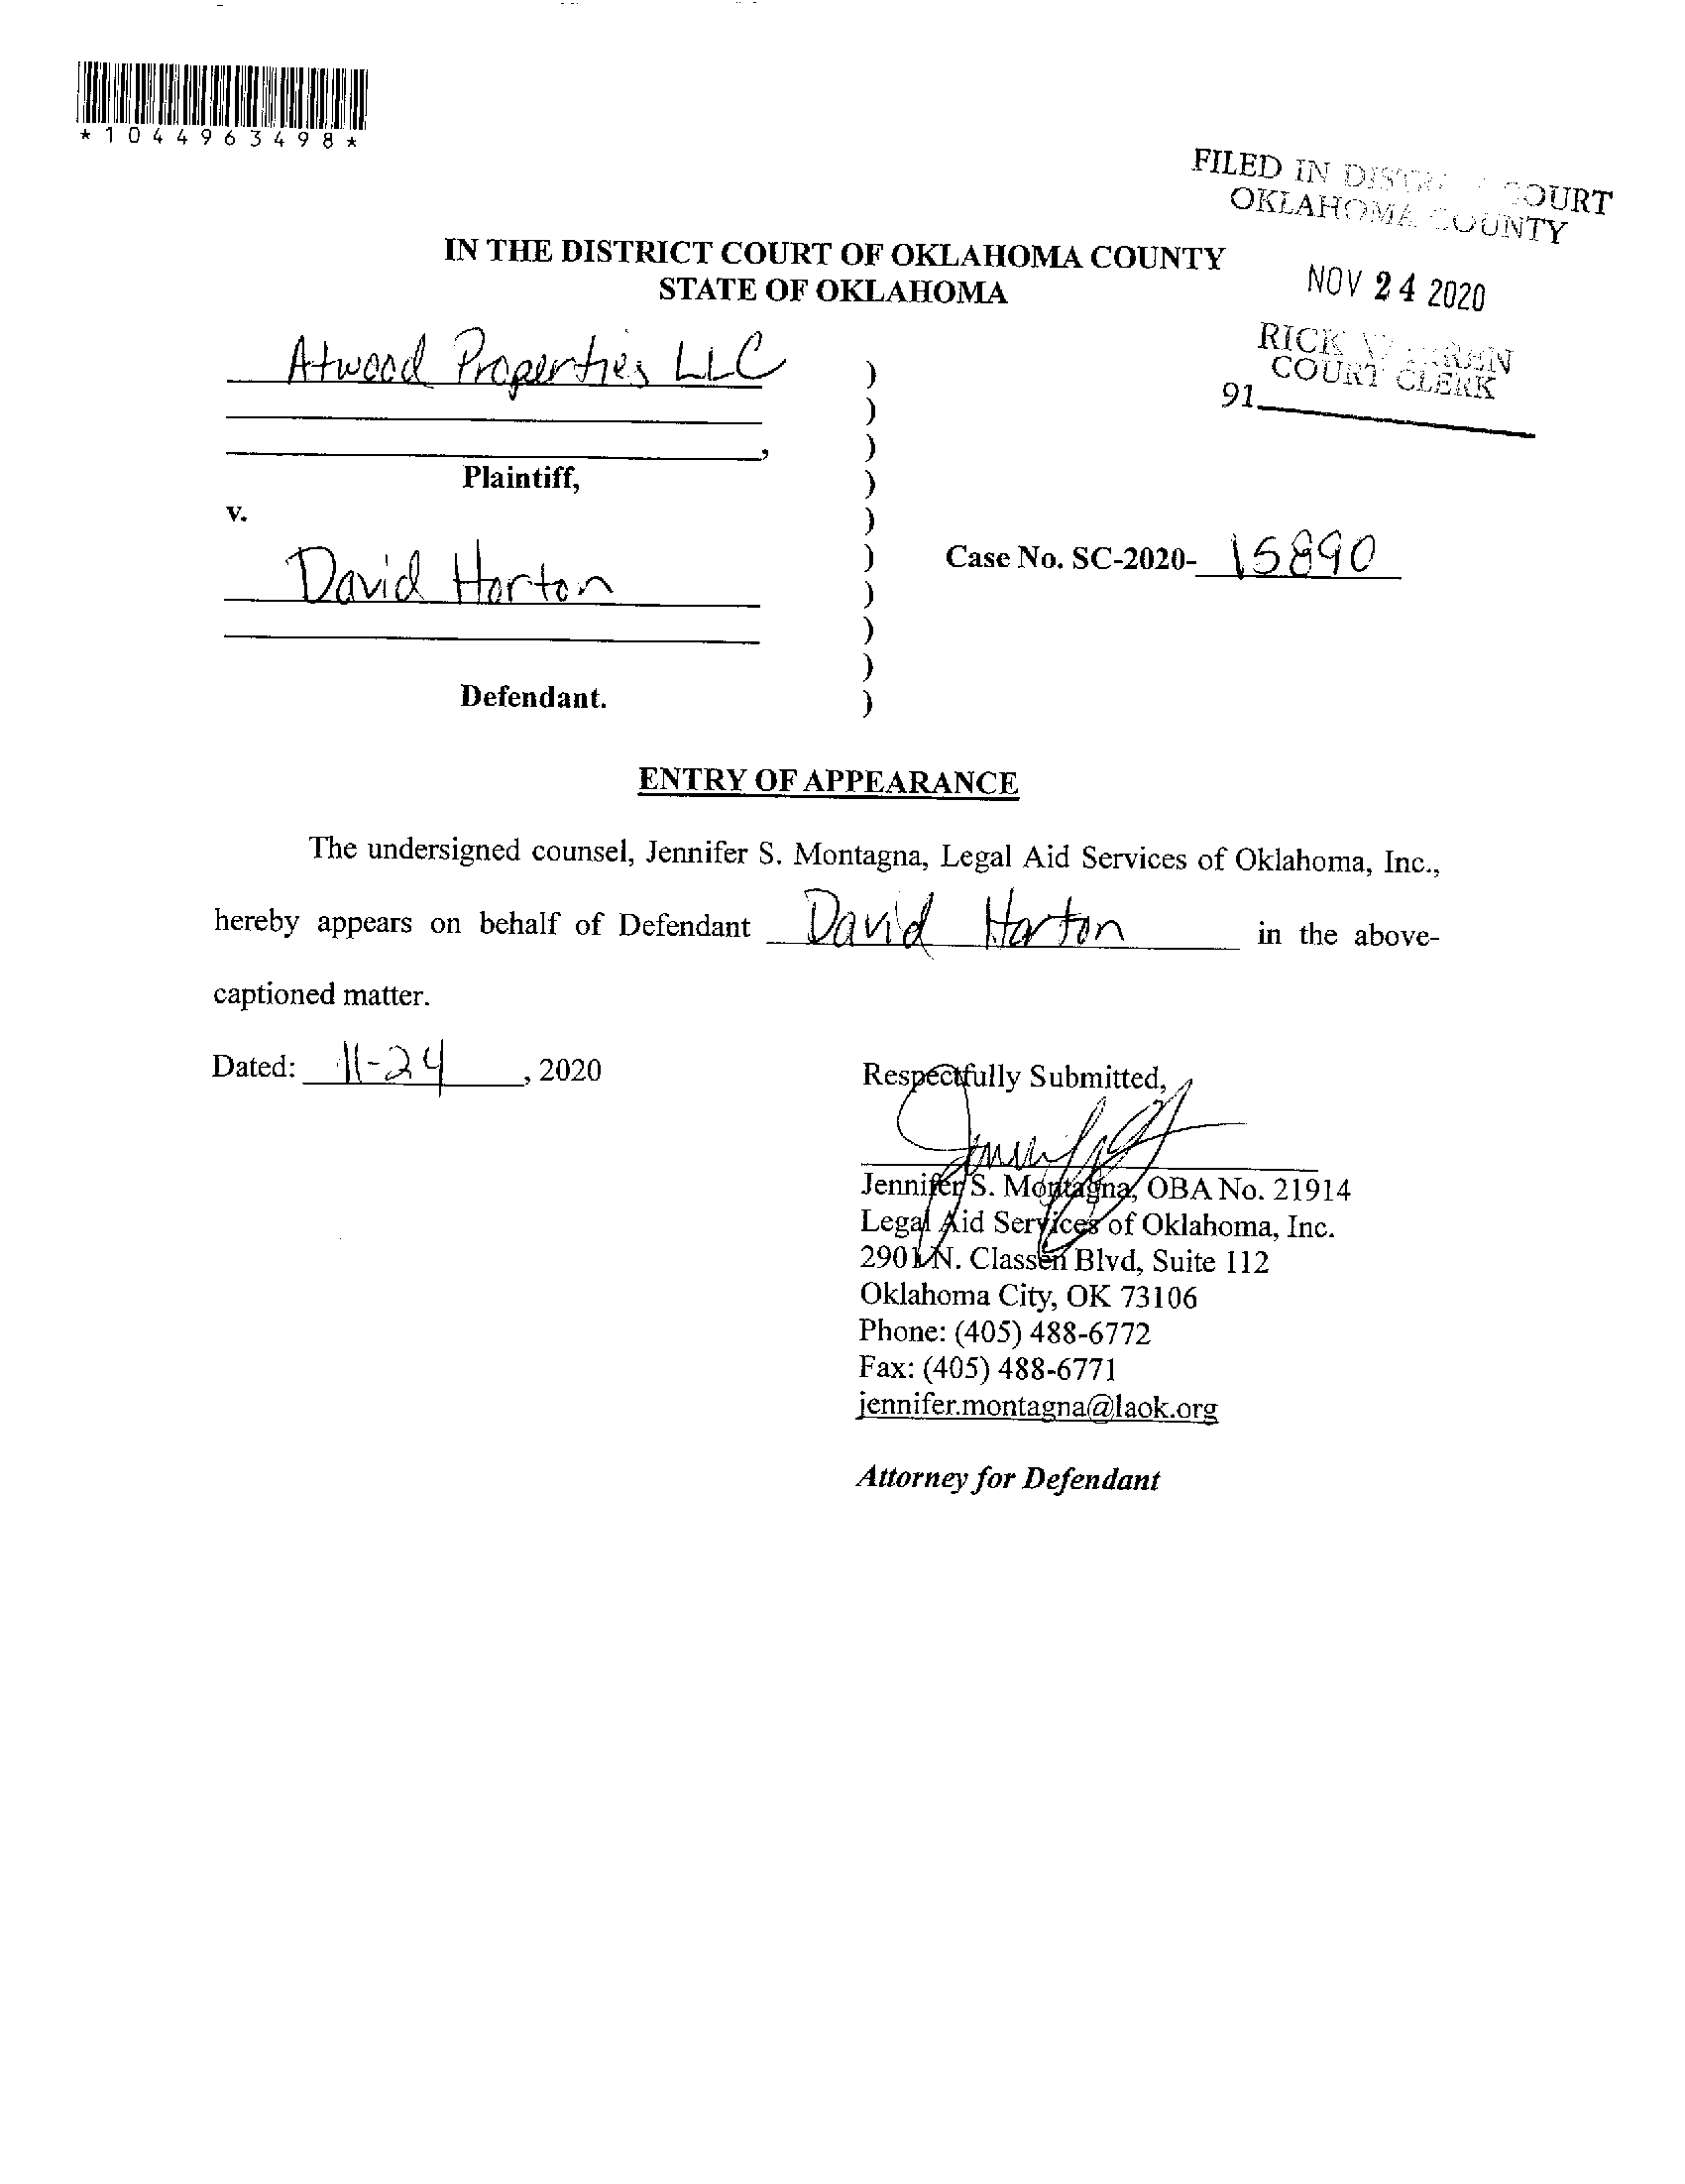 *1044963498*
FILED IN DISTRICT COURT
OKLAHOMA COUNTY
NOV 24 2020
RICK WARREN
COURT CLERK
91
IN THE DISTRICT COURT OF OKLAHOMA COUNTY
STATE OF OKLAHOMA
Atwood Properties LLC )
)
, )
Plaintiff, )
v. )
) Case No. SC-2020- 15890
David Horton )
)
)
Defendant. )
ENTRY OF APPEARANCE
The undersigned counsel, Jennifer S. Montagna, Legal Aid Services of Oklahoma, Inc.,
hereby appears on behalf of Defendant David Horton in the above-
captioned matter.
Dated: 11-24, 2020
Respectfully Submitted,
Jennifer S. Montagna, OBA No. 21914
Legal Aid Services of Oklahoma, Inc.
2901 N. Classen Blvd, Suite 112
Oklahoma City, OK 73106
Phone: (405) 488-6772
Fax: (405) 488-6771
jennifer.montagna@laok.org
Attorney for Defendant